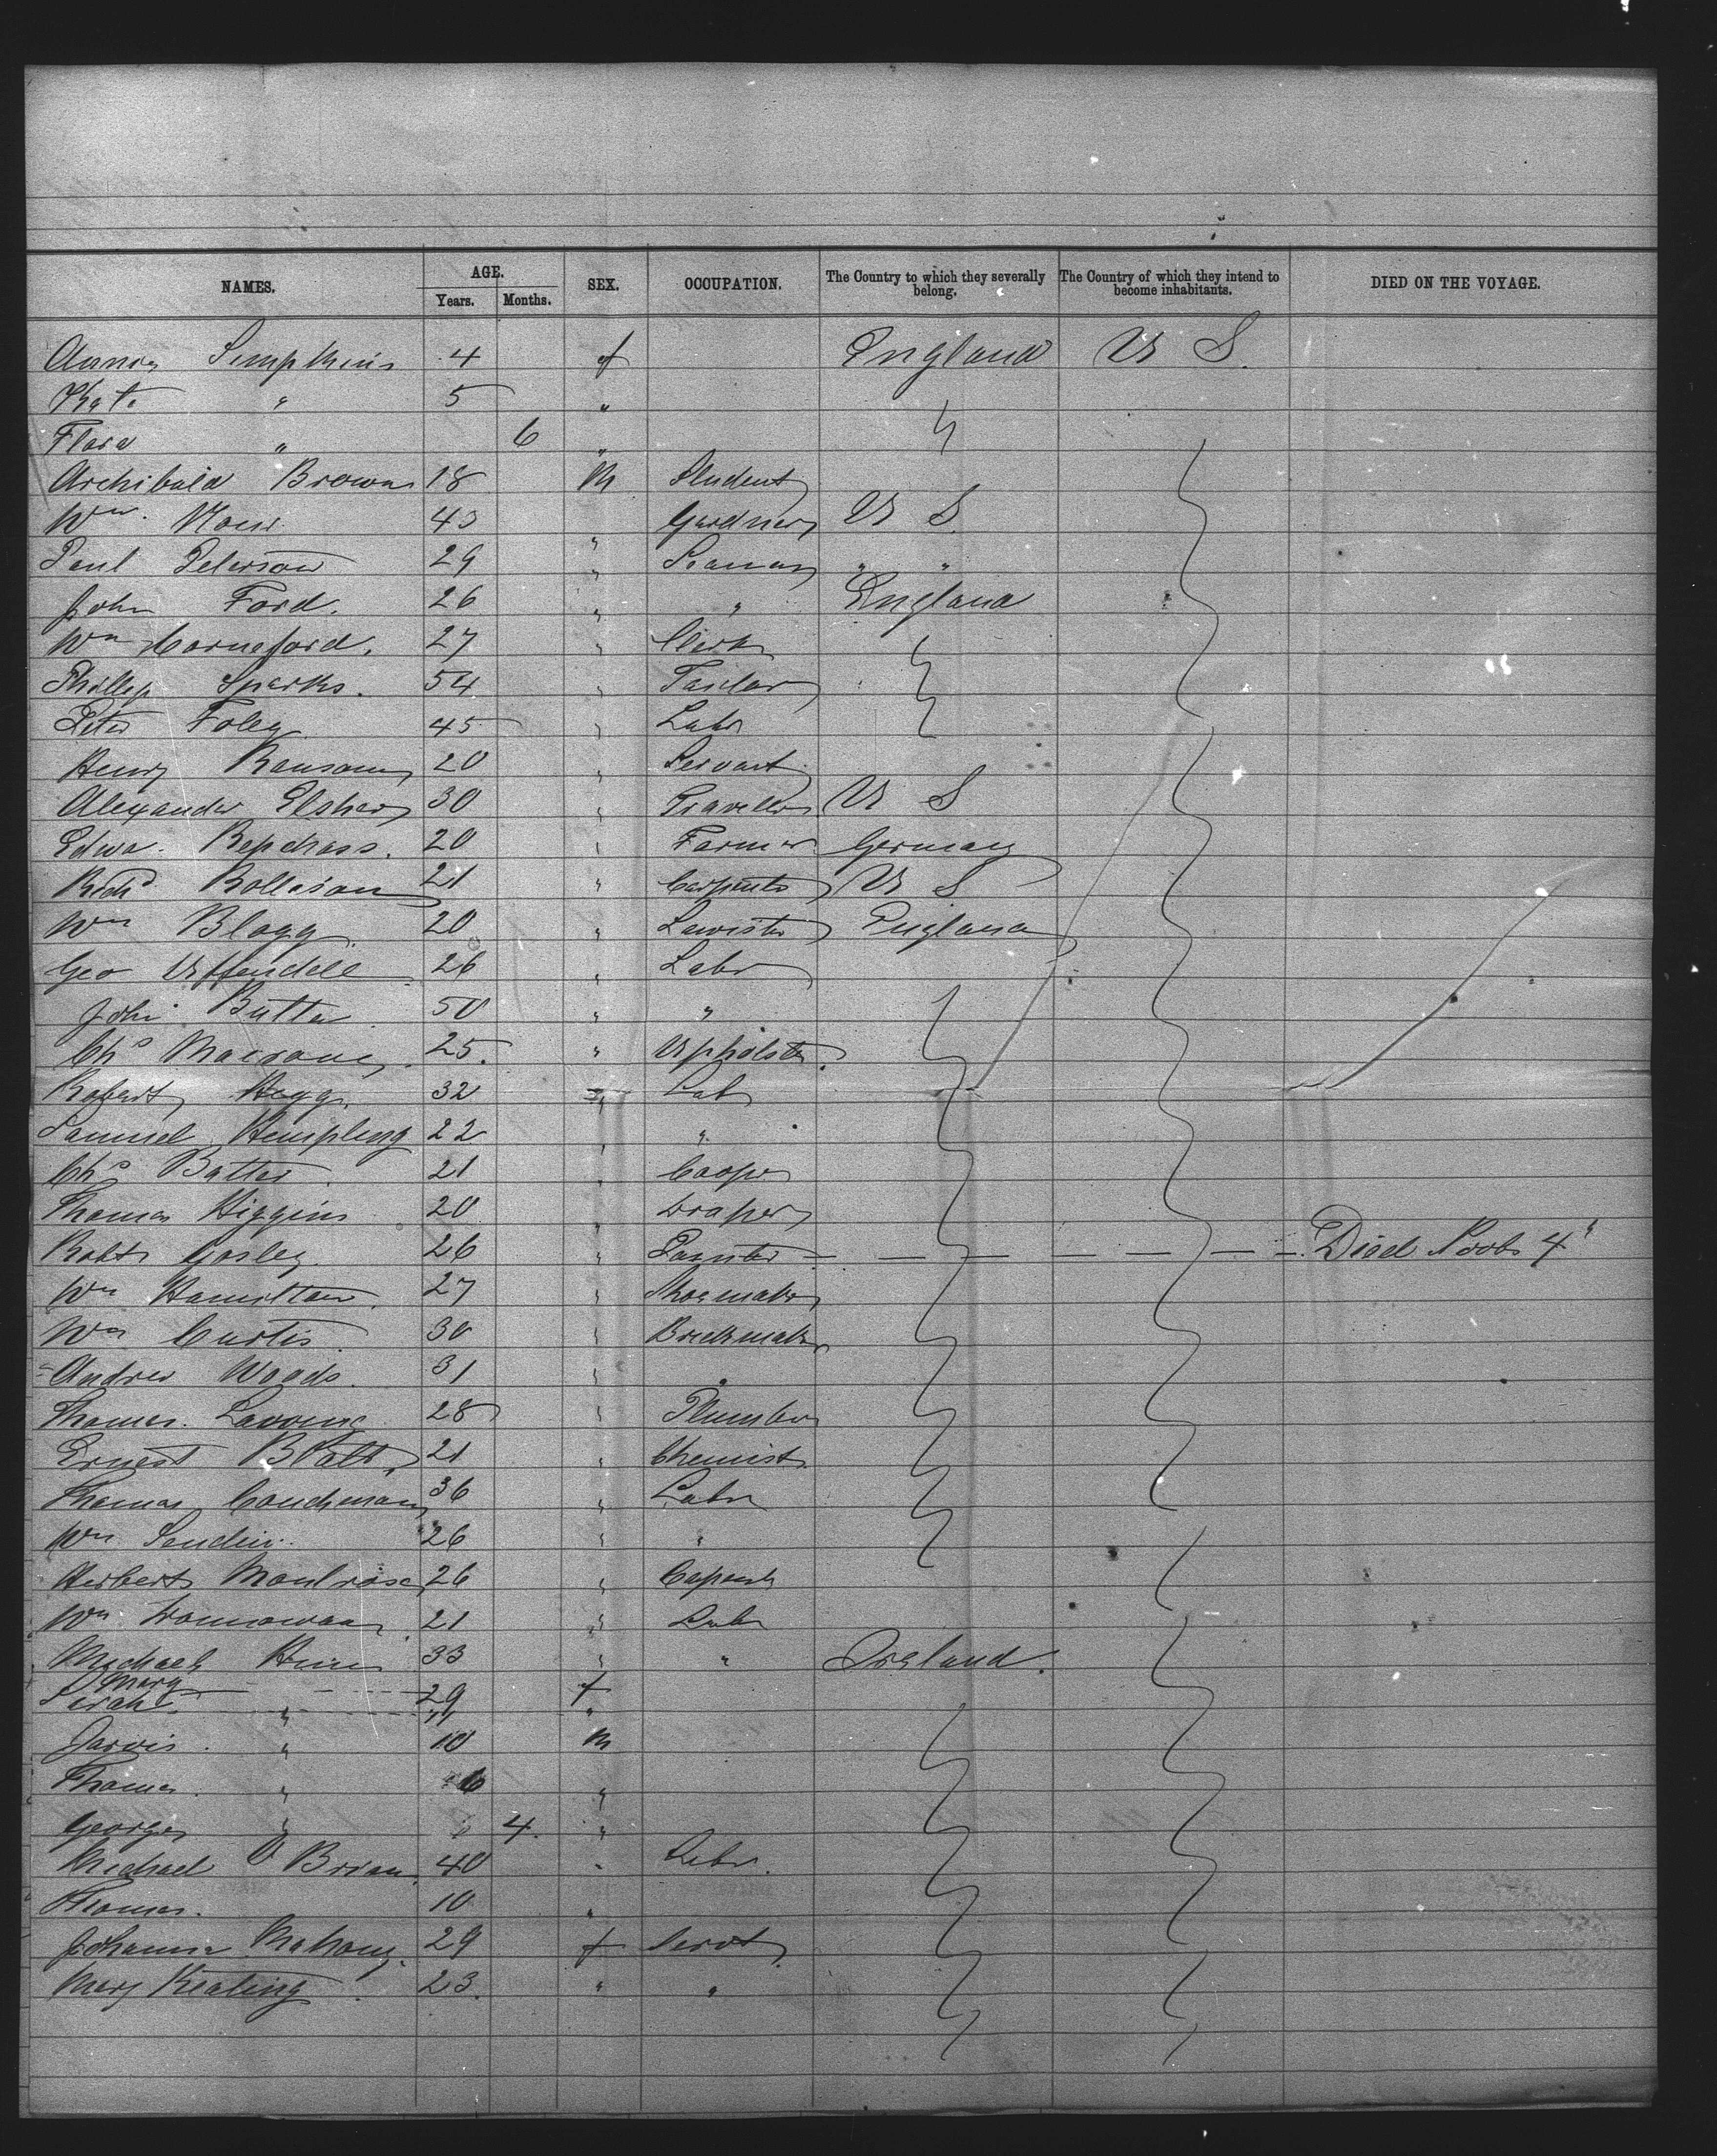 NAMES. AGE. SEX. OCCUPATION. The Country to which they severally belong. The Country of which they intend to become inhabitants. DIED ON THE VOYAGE.
Years. Months.
Annie Simpkins 4 f England U S.
Kate " 5 "
Flora " 6 "
Archibald Brown 18 M Student
Wm. 43 " Gardner U S
Paul Peterson 29 " Seaman " "
John Ford. 26 " " England
Wm Corneford. 27 " Clerk
Phillip Sparks. 54 " Tailor
Peter Foley 45 " Labr
Henry Ransom 20 " Servant
Alexander Elsher 30 " Traveller U S
Edwd. 20 " Farmer Germany
Richd Rolleson 21 " Carpenter U S
Wm Blagg 20 " England
Geo Uffendell 26 " Labr
John Butter 50 " "
Chs 25. " Upholster
Robert Hegg. 32 " Lab
Samuel Hempling 22 " "
Chs Batter. 21 " Cooper
Thomas Higgins 20 " Draper
Robt Gosley. 26 " Painter Died 4"
Wm Hamilton. 27 " Shoemaker
Wm Curtis. 30 " Brickmaker
Andrew Woods. 31 " "
Thomas. 28 " Plumber
Ernest B Batt. 21 " Chemist
Thomas Couchman 36 " Labr
Wm 26 " "
Herbert Montrose 26 "
Wm 21 " Labr
Michael 33 " " Ireland.
Mary 29 f
Sarah " "
Jarvis. " 10 M
Thomas. " 6 "
George " 4. "
Michael O Brien 40 " Labr.
Thomas. 10 "
Johanna Mahony. 29 f Servt.
Mary Keating. 23. " "